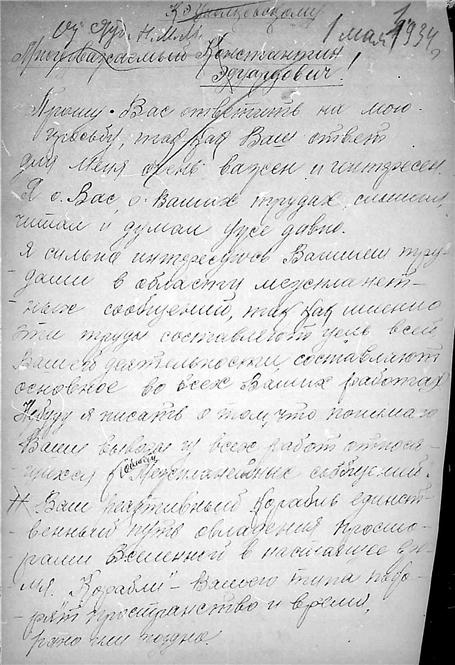 К. Циолковскому
1 мая 1934 г.
Многоуважаемый Константин
Эдуардович!
Прошу Вас ответить на мою
просьбу, так как Ваш ответ
для меня очень важен и интересен.
Я о Вас, о Ваших трудах слышал,
читал и думал уже давно.
Я сильно интересуюсь Вашими тру-
дами в области межпланет-
ных сообщений, так как именно
эти труды составляют цель всей
Вашей деятельности, составляют
основное во всех Ваших работах
Не буду я писать о том, что понимаю
Ваши выводы из всех работ относя-
щихся к Межпланетных сообщений
Ваш реактивный корабль единст-
венный путь овладения просто-
рами Вселенной в настоящее вре-
мя. Корабли Вашего типа поко-
рят пространство и время,
рано или поздно.